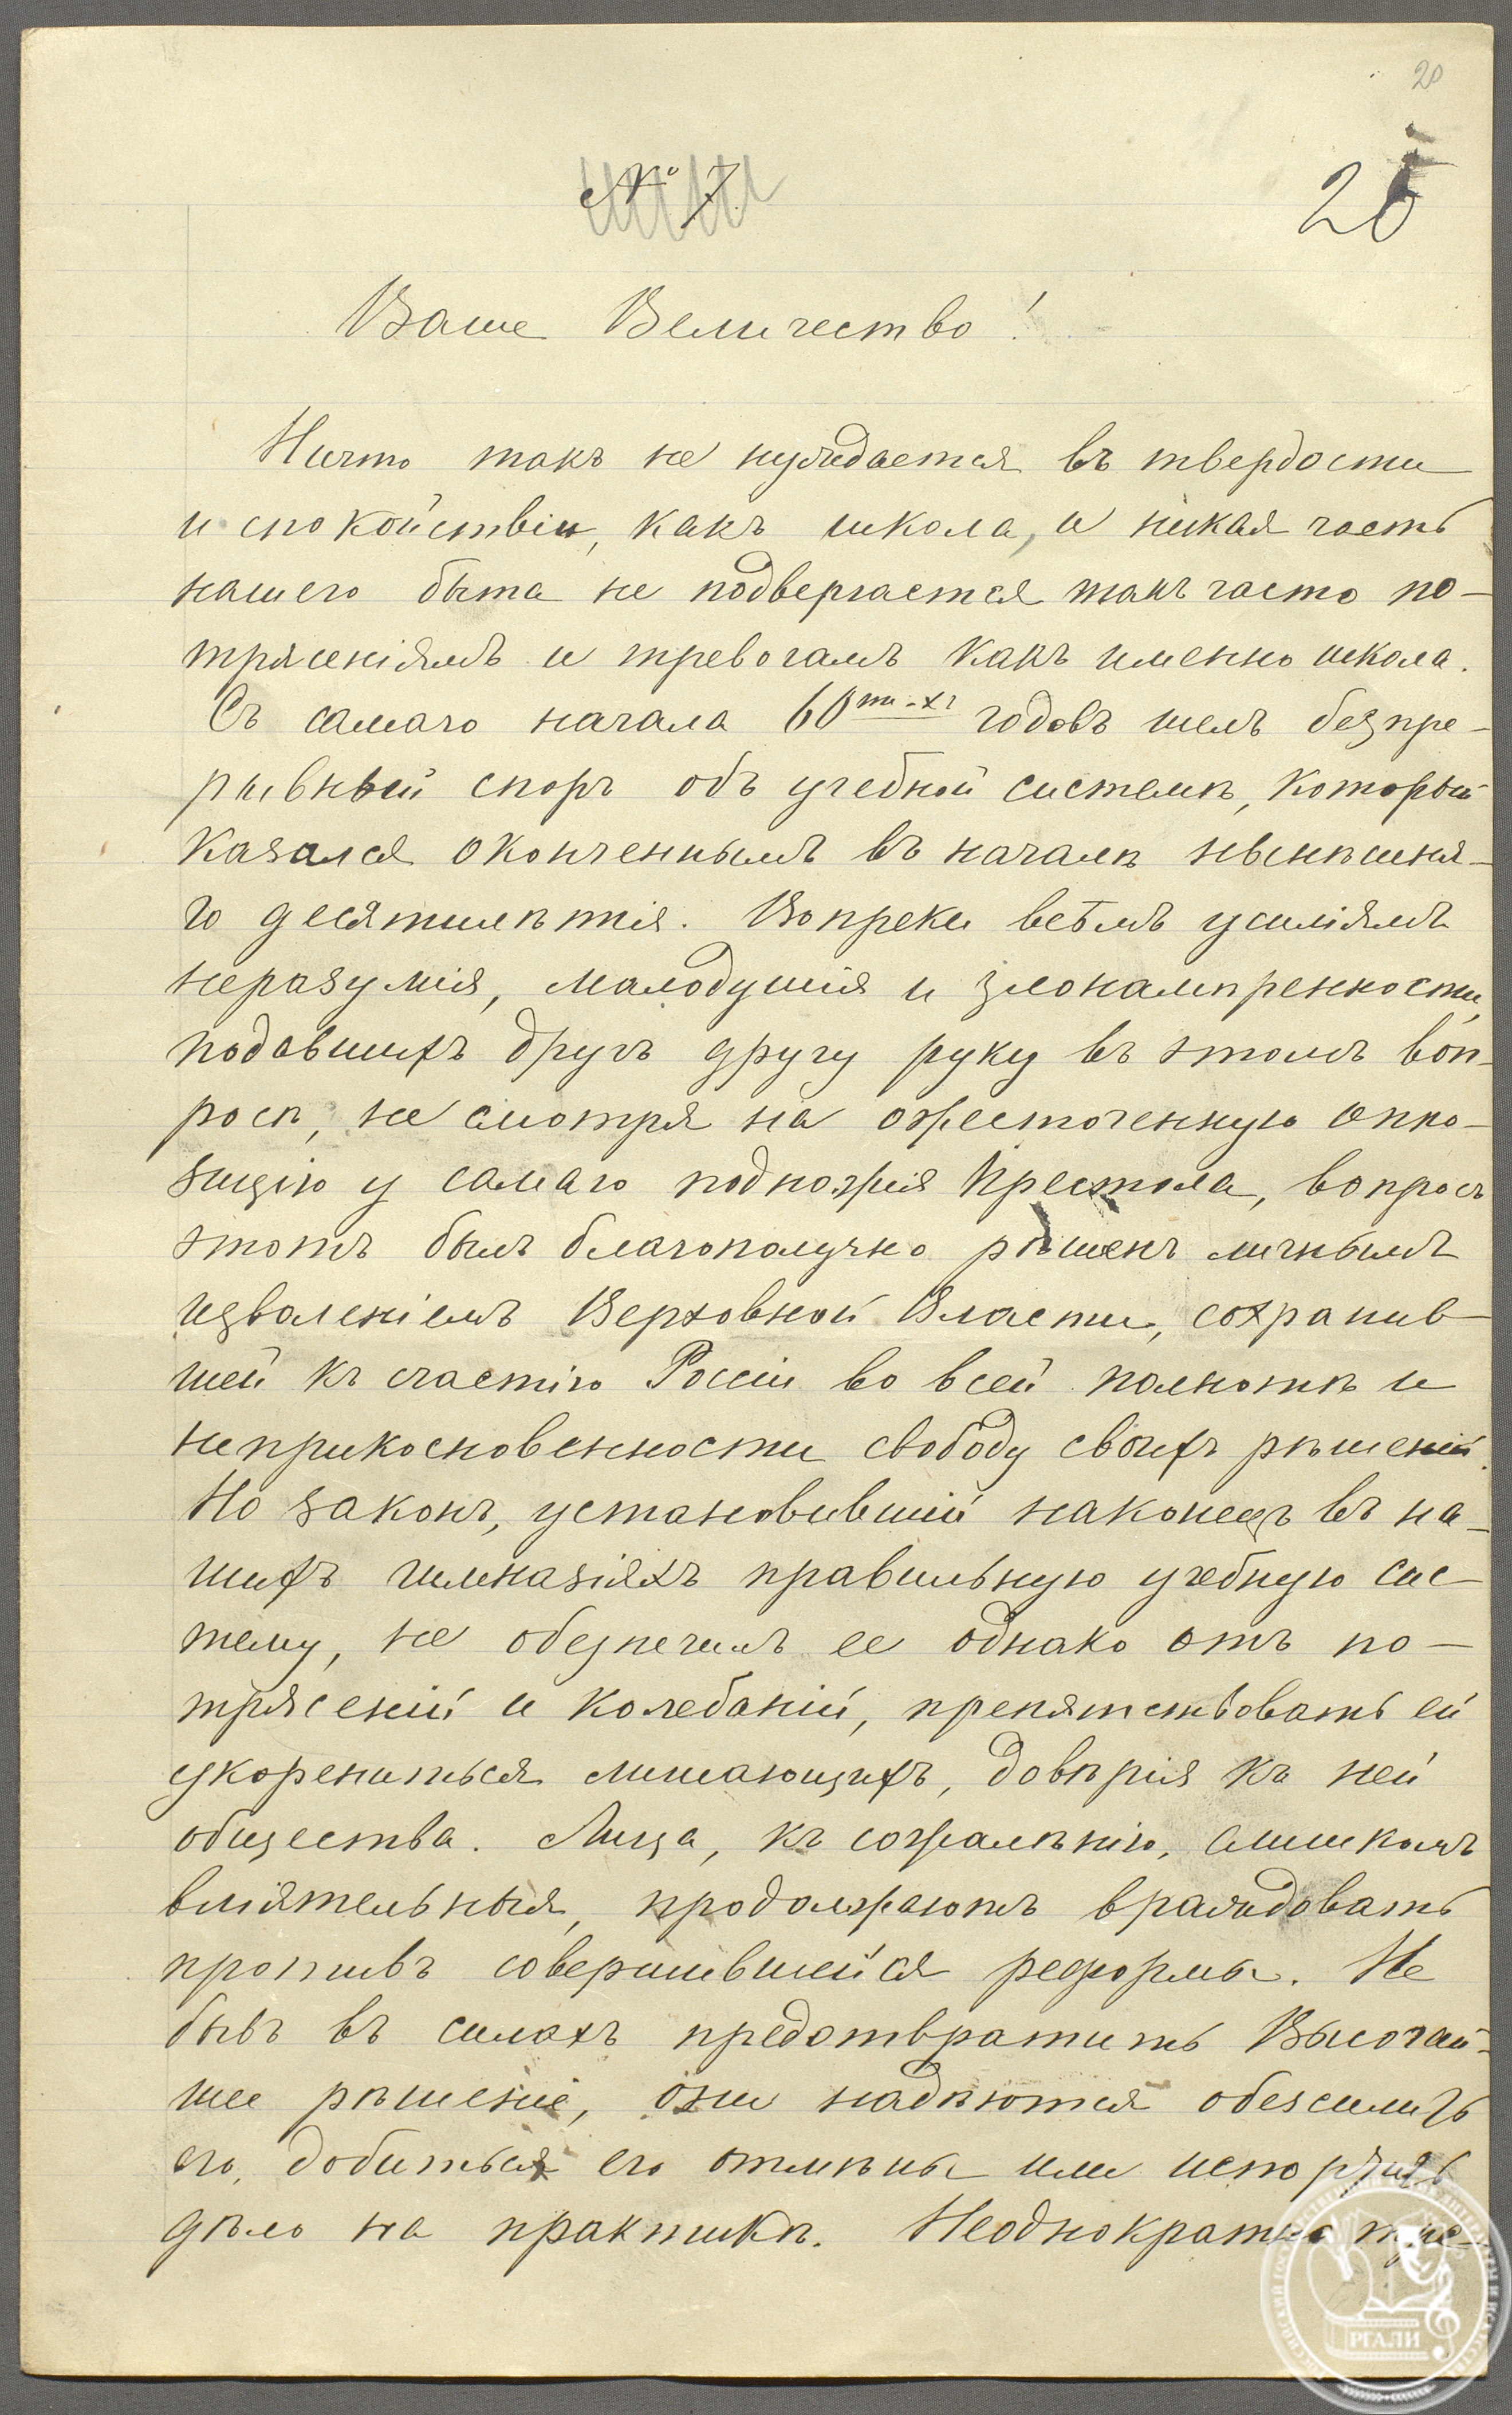 20
№ 7.
20
Ваше Величество!
Ничто такъ не нуждается въ твердости
и спокойствіи, какъ школа, и никая часть
нашего быта не подвергается такъ часто по-
трясеніямъ и тревогамъ какъ именно школа.
Съ самаго начала 60ти-хъ годовъ шелъ безпре-
рывный споръ объ учебной системѣ, который
казался оконченнымъ въ началѣ нынѣшня-
го десятилѣтія. Вопреки всѣмъ усиліямъ
неразумія, малодушія и злонамѣренности,
подавшихъ другъ другу руку въ этомъ воп-
росѣ, не смотря на ожесточенную оппо-
зицію у самаго подножія Престола, вопросъ
этотъ былъ благополучно рѣшенъ личнымъ
изволеніемъ Верховной Власти, сохранив-
шей къ счастію Россіи во всей полнотѣ и
неприкосновенности свободу своихъ рѣшеній.
Но законъ, установившій наконецъ въ на-
шихъ гимназіяхъ правильную учебную сис-
тему, не обезпечилъ ее однако отъ по-
трясеній и колебаній, препятствовать ей
укорениться лишающихъ, довѣрія къ ней
общества. Лица, къ сожалѣнію, слишкомъ
вліятельныя, продолжаютъ враждовать
противъ совершившейся реформы. Не
бывъ въ силахъ предотвратить Высочай-
шее рѣшеніе, они надѣются обезсилить
его, добиться его отмѣны или испортить
дѣло на практикѣ. Неоднократно
РГАЛИ